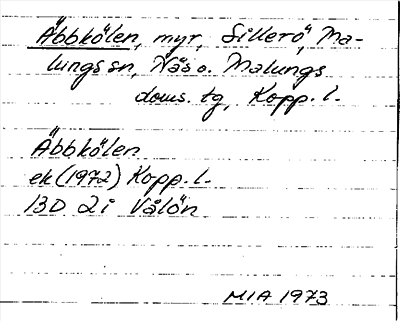 Äbbkölen, myr, Sillerö, Ma-
lungs sn, Näs o. Malungs
doms. tg, Kopp. l.
Äbbkölen
ek (1972) Kopp. l.
13D 2i Vålön
MIA 1973